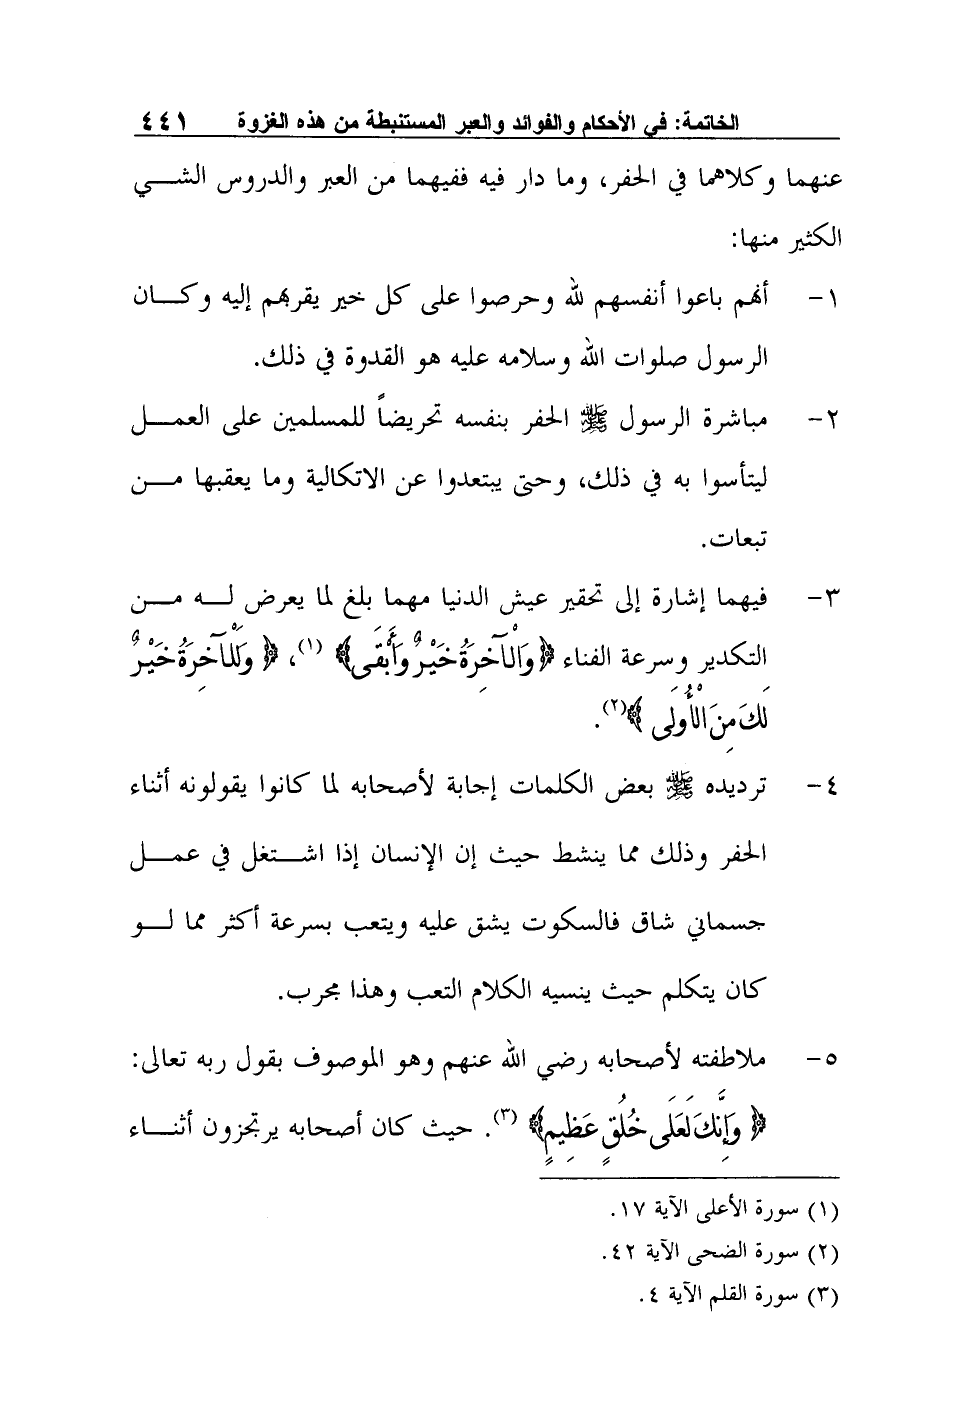 الخاتمة: في الأحكام والفوائد والعبر المستنبطة من هذه الغزوة ٤٤١
عنهما وكلاهما في الحفر، وما دار فيه ففيهما من العبر والدروس الشـــي
الكثير منها:
١- أنهم باعوا أنفسهم لله وحرصوا على كل خير يقربهم إليه وكـــان
الرسول صلوات الله وسلامه عليه هو القدوة في ذلك.
٢- مباشرة الرسول ﷺ الحفر بنفسه تحريضاً للمسلمين على العمـــل
ليتأسوا به في ذلك، وحتى يبتعدوا عن الاتكالية وما يعقبها مـــن
تبعات.
٣- فيهما إشارة إلى تحقير عيش الدنيا مهما بلغ لما يعرض لـــه مـــن
التكدير وسرعة الفناء ﴿وَالْآخِرَةُ خَيْرٌ وَأَبْقَى﴾ (١)، ﴿وَلَلْآخِرَةُ خَيْرٌ
لَكَ مِنَ الْأُولَى﴾(٢).
٤- ترديده ﷺ بعض الكلمات إجابة لأصحابه لما كانوا يقولونه أثناء
الحفر وذلك مما ينشط حيث إن الإنسان إذا اشـــتغل في عمـــل
جسماني شاق فالسكوت يشق عليه ويتعب بسرعة أكثر مما لـــو
كان يتكلم حيث ينسيه الكلام التعب وهذا مجرب.
٥- ملاطفته لأصحابه رضي الله عنهم وهو الموصوف بقول ربه تعالى:
﴿وَإِنَّكَ لَعَلَى خُلُقٍ عَظِيمٍ﴾ (٣). حيث كان أصحابه يرتجزون أثنـــاء
(١) سورة الأعلى الآية ١٧.
(٢) سورة الضحى الآية ٤٢.
(٣) سورة القلم الآية ٤.